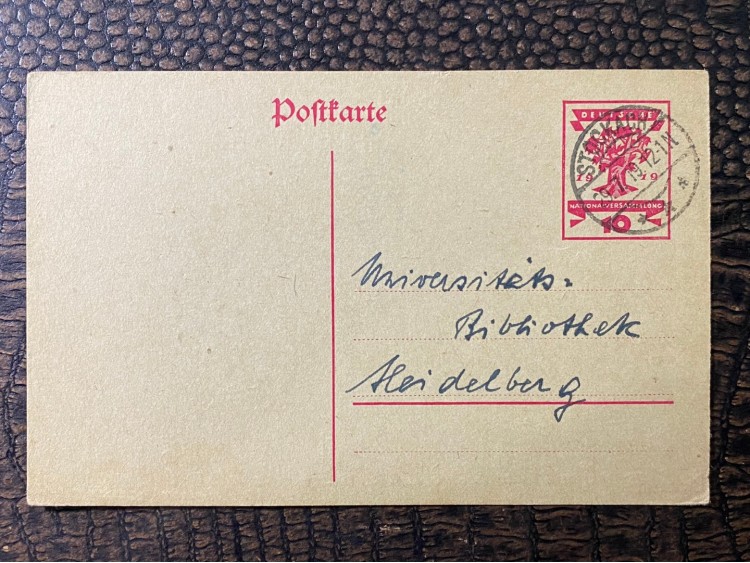 Postkarte
DEUTSCHE
19 19
NATIONALVERSAMMLUNG
10
STOCKACH
19 12-1N
Universitäts-
Bibliothek
Heidelberg